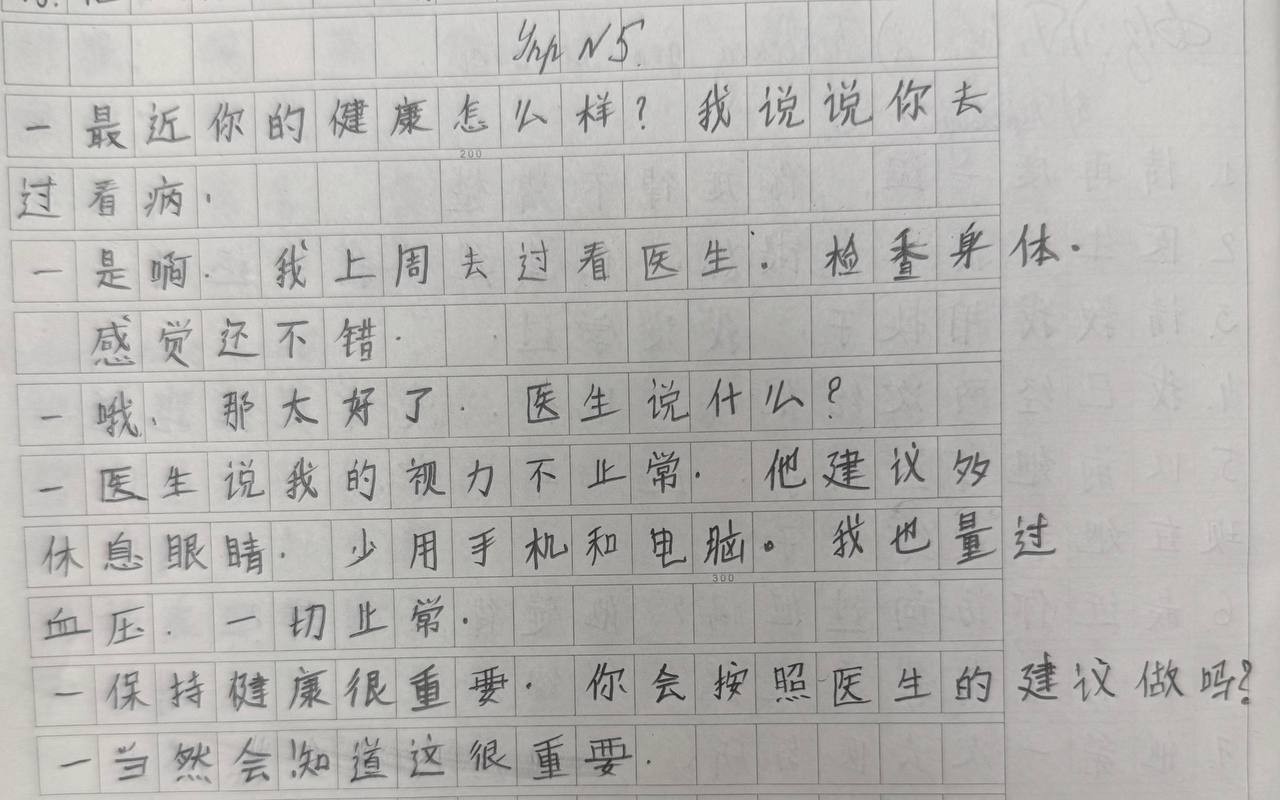 Упр N5.
一 最近你的健康怎么样? 我说说你去
200
过看病.
一 是啊. 我上周去过看医生. 检查身体.
感觉还不错.
一 哦. 那太好了. 医生说什么?
一 医生说我的视力不止常. 他建议多
休息眼睛. 少用手机和电脑。我也量过
300
血压. 一切止常.
一 保持健康很重要. 你会按照医生的建议做吗?
一 当然会知道这很重要.